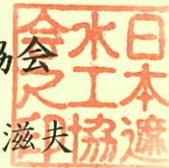 協会
滋夫
日本遮
水工協
会之印